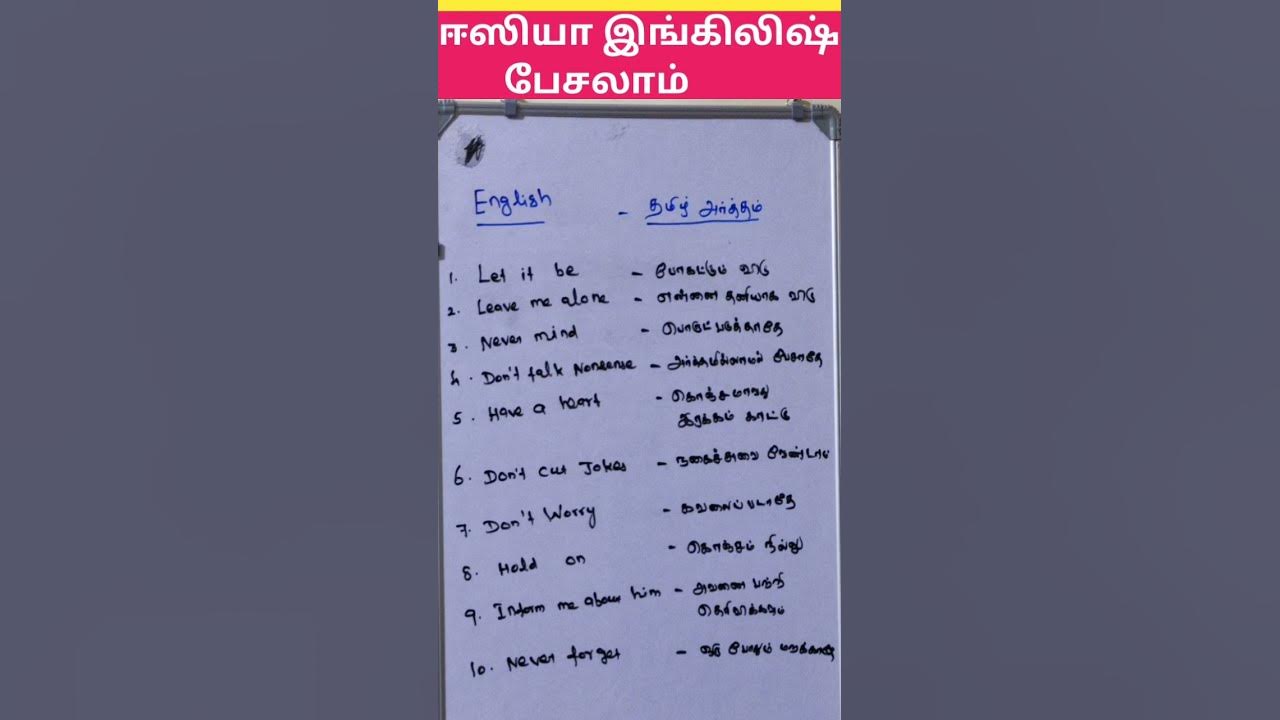 ஈஸியா இங்கிலிஷ்
பேசலாம்
English - தமிழ் அர்த்தம்
1. Let it be - போகட்டும் விடு
2. Leave me alone - என்னை தனியாக விடு
3. Never mind - பொருட்படுத்தாதே
4. Don't talk Nonsense - அர்த்தமில்லாமல் பேசாதே
5. Have a heart - கொஞ்சமாவது
இரக்கம் காட்டு
6. Don't cut Jokes - நகைச்சுவை வேண்டாம்
7. Don't Worry - கவலைப்படாதே
8. Hold on - கொஞ்சம் நில்லு
9. Inform me about him - அவனை பற்றி
தெரிவிக்கவும்
10. Never forget - ஒரு போதும் மறக்காதே